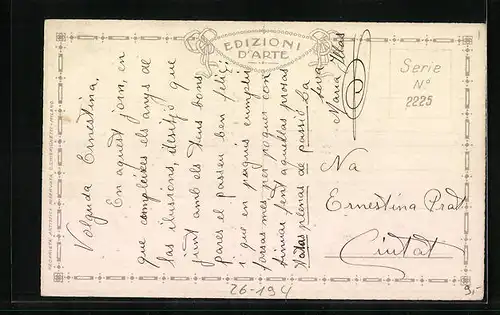 EDIZIONI
D'ARTE
Serie
Nº
2225
Volguda Ernestina.
En aquest jorn, en
que compleixes els anys de
las ilusions, desitjo que
junt amb els teus bons
pares el passeu ben feliç
i que en poguis cumplir
forsas mes per poguer con
tinuar fent aquellas prosas
totas plenas de passió La
seva
Maria
Na
Ernestina Prat
Ciutat
26-194